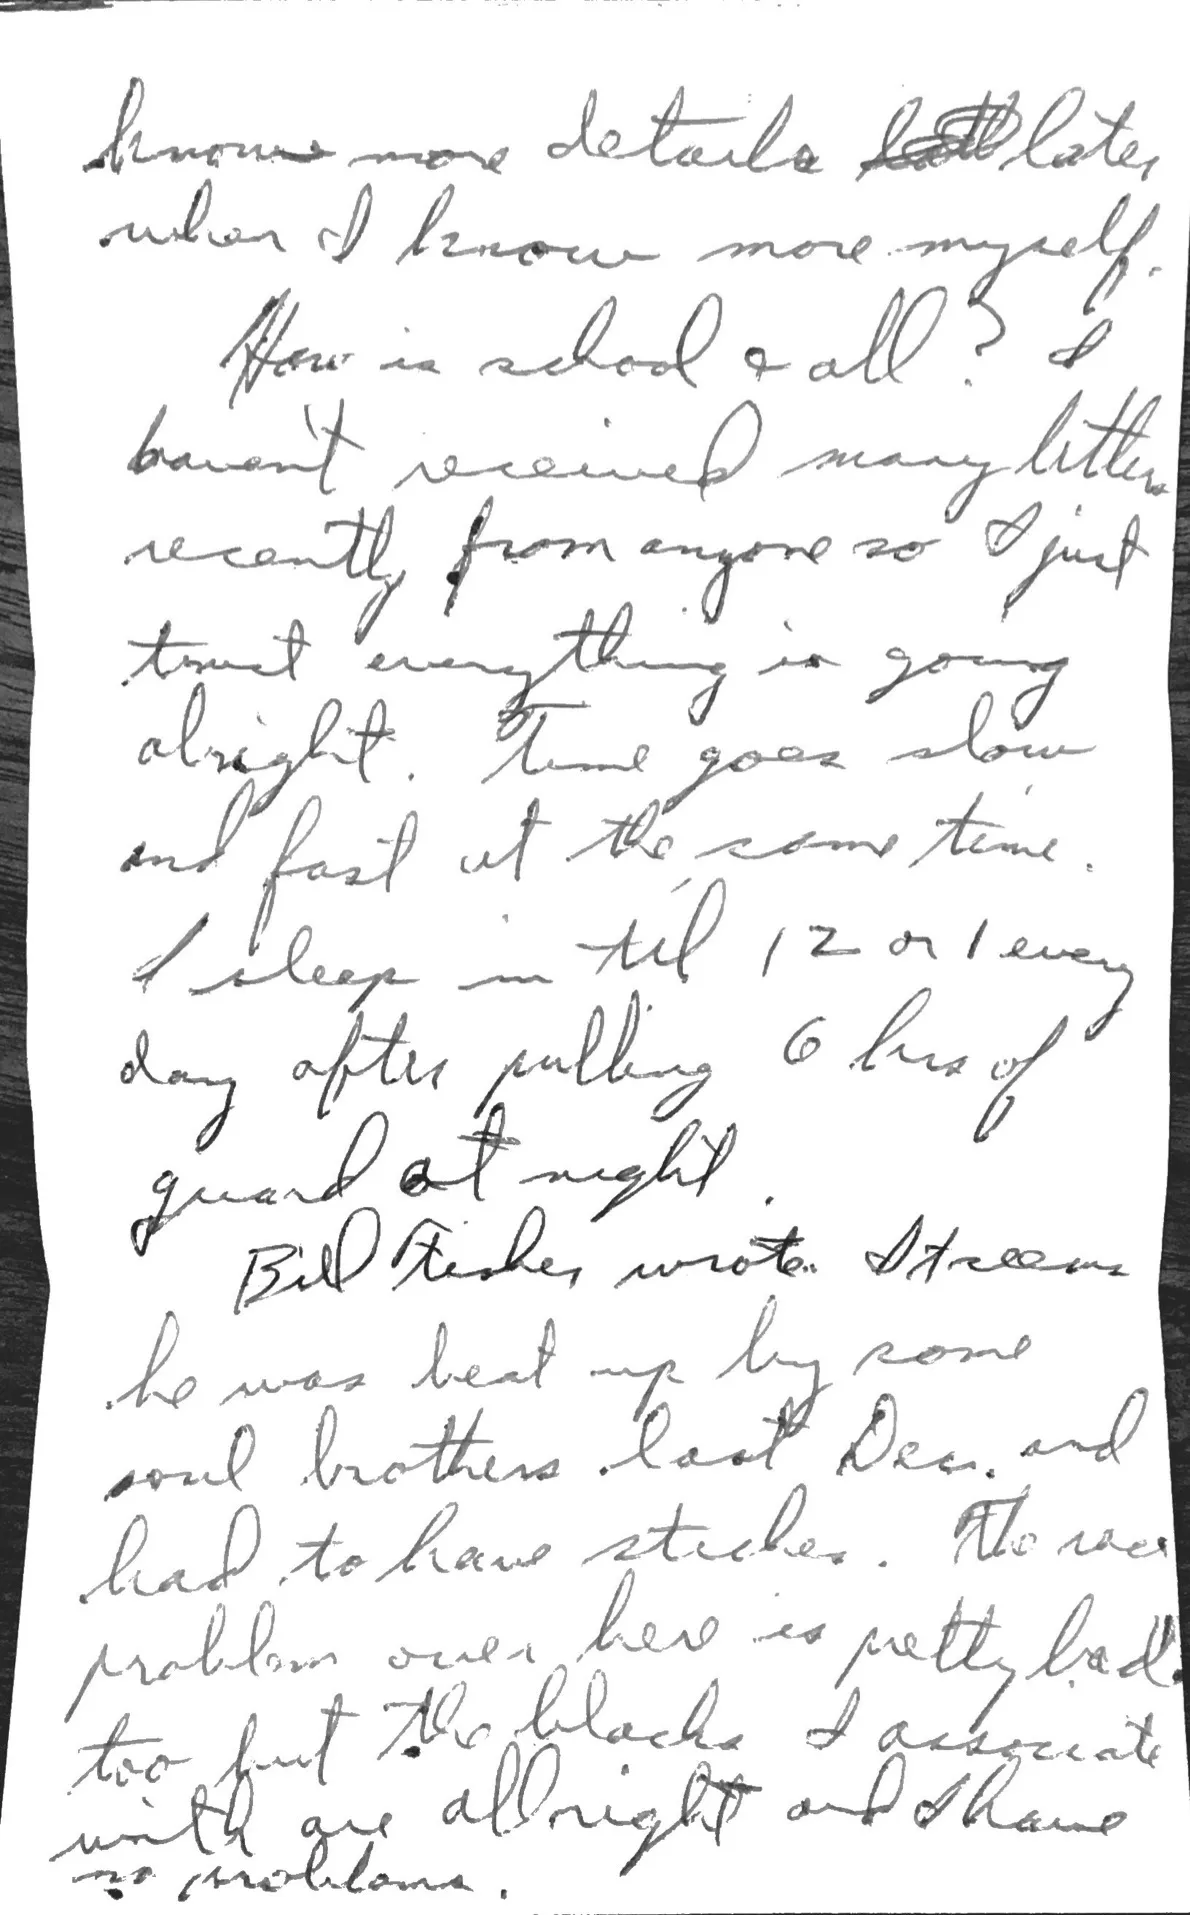 know more details later
when I know more myself.
How is school & all? I
haven't received many letters
recently from anyone so I just
trust everything is going
alright. Time goes slow
and fast at the same time.
I sleep in til 12 or 1 every
day after pulling 6 hrs of
guard at night.
Bill Fisher wrote. It seems
he was beat up by some
soul brothers last Dec. and
had to have stiches. The race
problem over here is pretty bad
too but the blacks I associate
with are allright and I have
no problems.